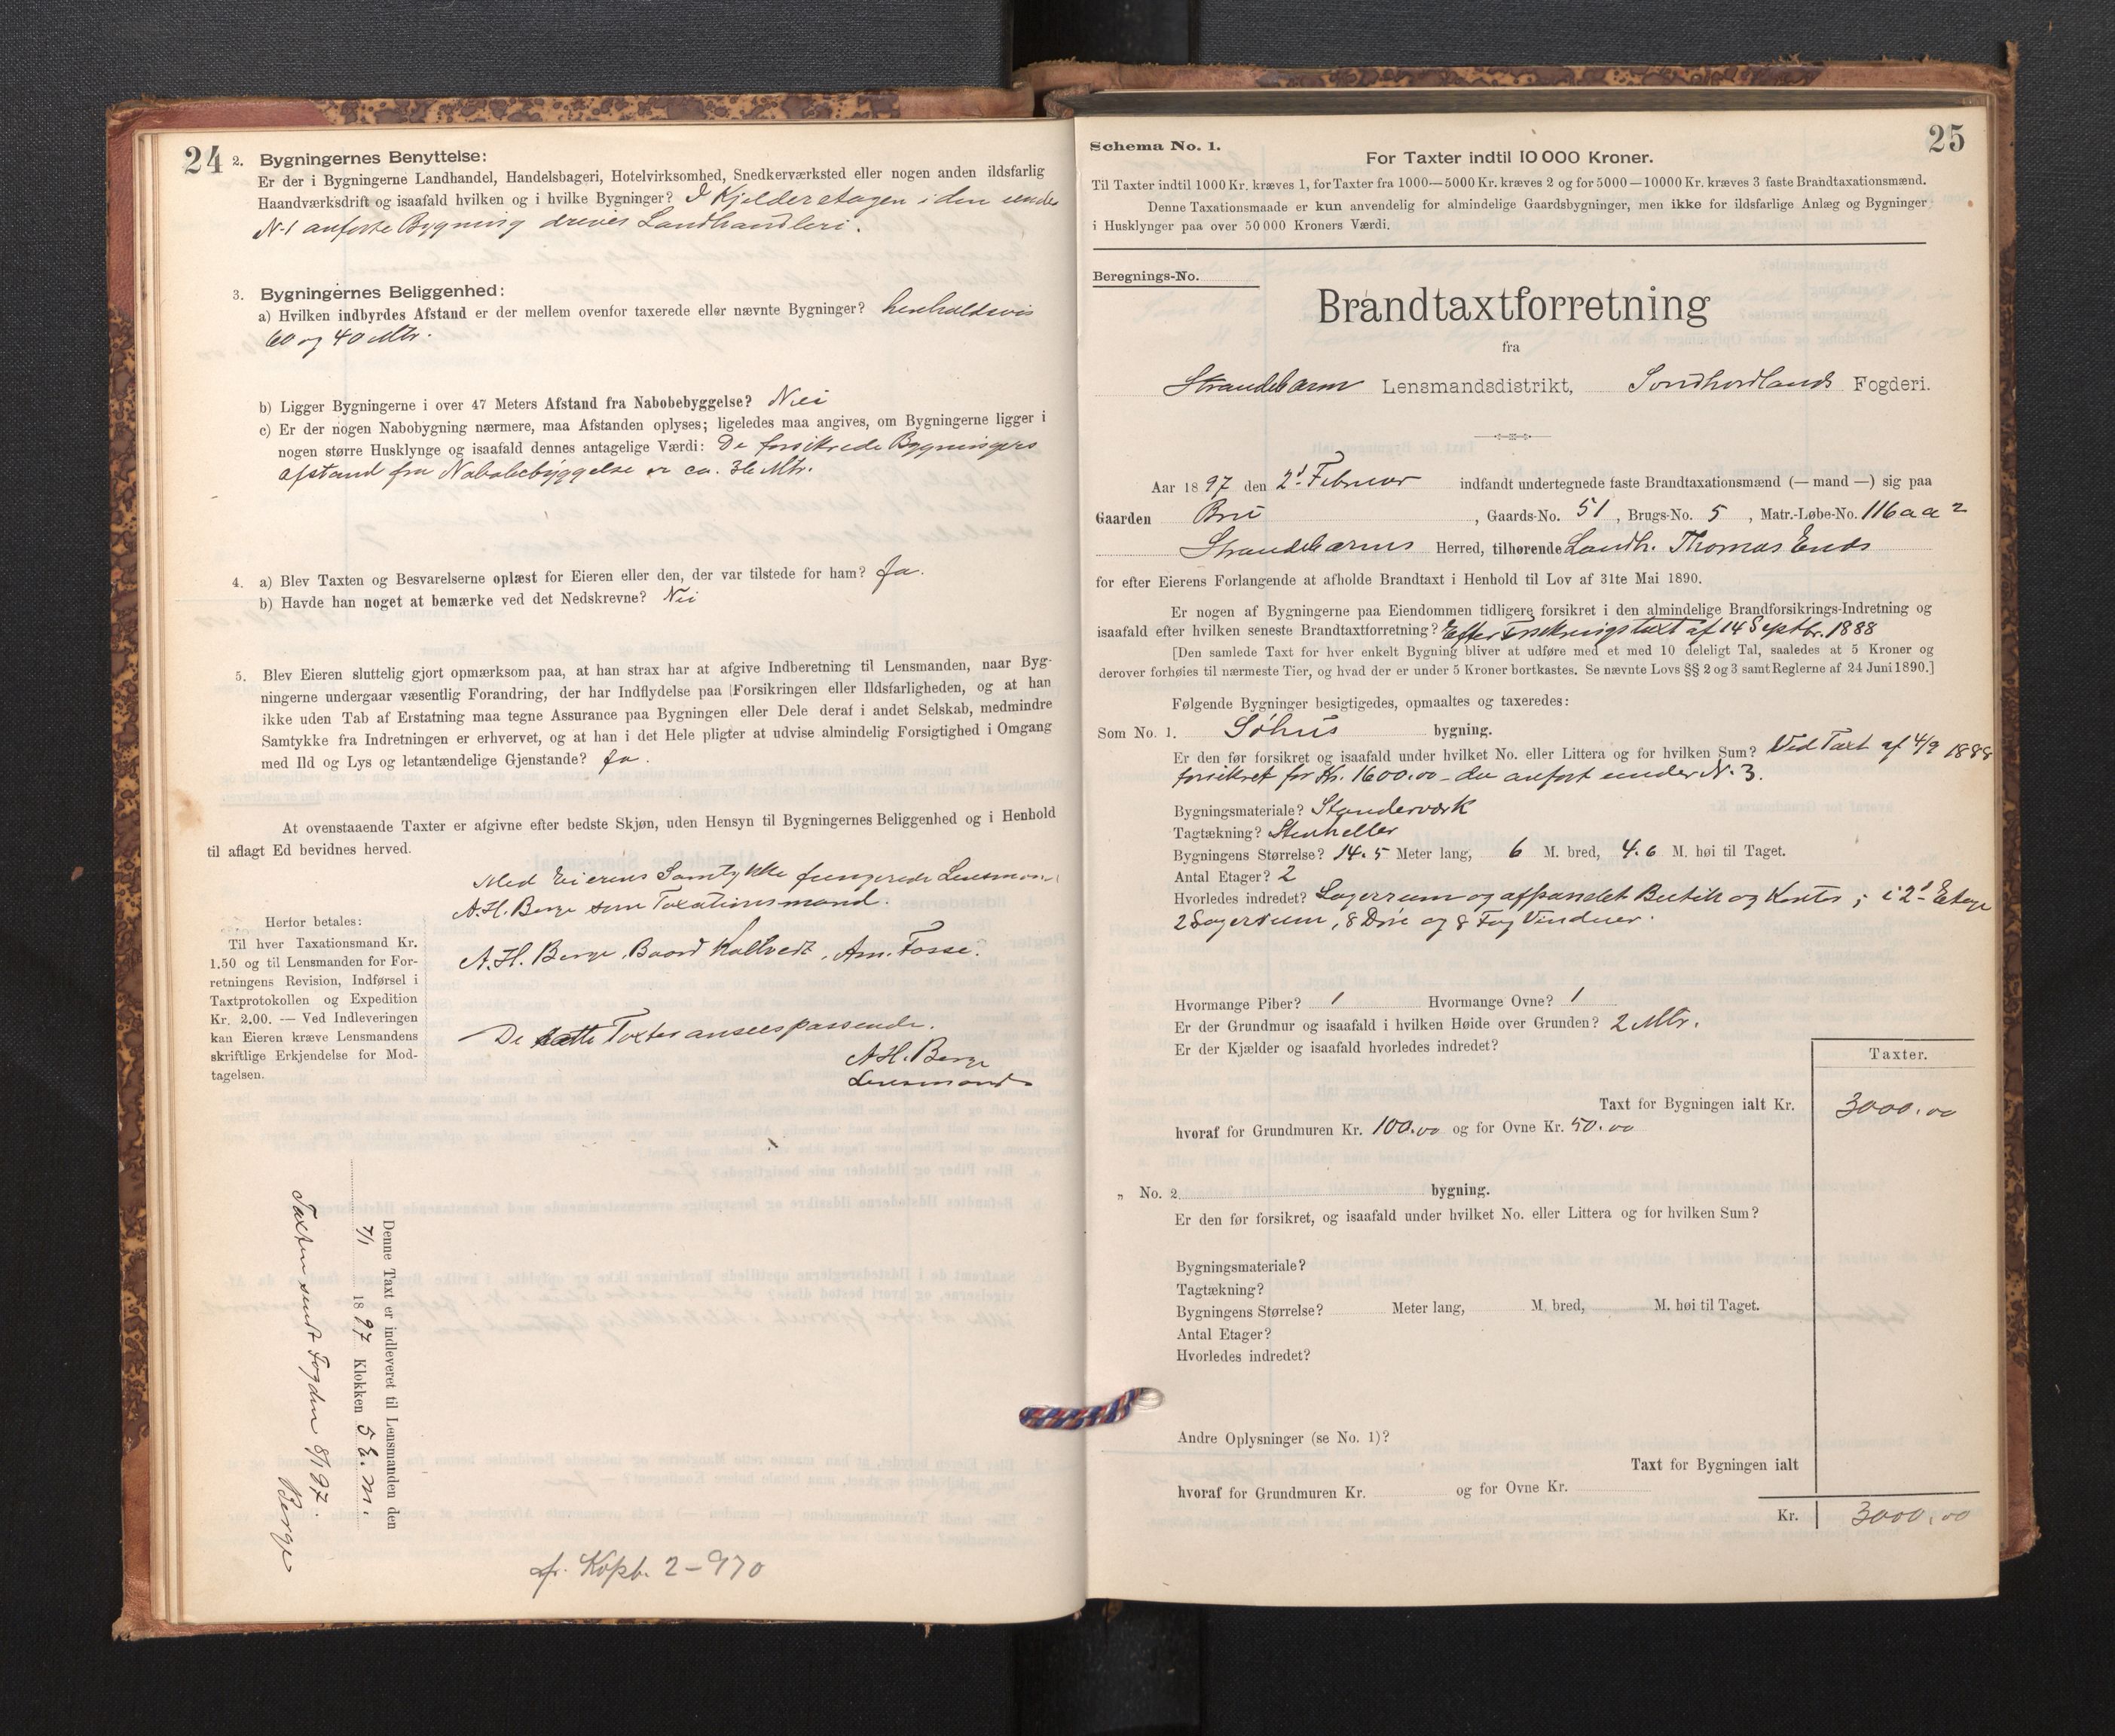 24
2. Bygningernes Benyttelse:
Er der i Bygningerne Landhandel, Handelsbageri, Hotelvirksomhed, Snedkerværksted eller nogen anden ildsfarlig
Haandværksdrift og isaafald hvilken og i hvilke Bygninger? I Kjelderetagen i den under
N-1 anførte Bygning drives Landhandleri.
3. Bygningernes Beliggenhed:
a) Hvilken indbyrdes Afstand er der mellem ovenfor taxerede eller nævnte Bygninger? henholdsvis
60 og 40 Mtr.
b) Ligger Bygningerne i over 47 Meters Afstand fra Nabobebyggelse? Nei
c) Er der nogen Nabobygning nærmere, maa Afstanden oplyses; ligeledes maa angives, om Bygningerne ligger i
nogen større Husklynge og isaafald dennes antagelige Værdi: De forsikrede Bygningers
afstand fra Nabobebyggelse er ca. 36 Mtr.
4. a) Blev Taxten og Besvarelserne oplæst for Eieren eller den, der var tilstede for ham? Ja.
b) Havde han noget at bemærke ved det Nedskrevne? Nei
5. Blev Eieren sluttelig gjort opmærksom paa, at han strax har at afgive Indberetning til Lensmanden, naar Byg-
ningerne undergaar væsentlig Forandring, der har Indflydelse paa Forsikringen eller Ildsfarligheden, og at han
ikke uden Tab af Erstatning maa tegne Assurance paa Bygningen eller Dele deraf i andet Selskab, medmindre
Samtykke fra Indretningen er erhvervet, og at han i det Hele pligter at udvise almindelig Forsigtighed i Omgang
med Ild og Lys og letantændelige Gjenstande? Ja.
At ovenstaaende Taxter er afgivne efter bedste Skjøn, uden Hensyn til Bygningernes Beliggenhed og i Henhold
til aflagt Ed bevidnes herved.
Med Eierens Samtykke fungerede Lensmand
A.H. Berge som Taxationsmand.
A. H. Berge, Baard Kaltvedt, Am. Fosse.
De satte Taxter ansees passende.
A.H. Berge
Lensmand
Herfor betales:
Til hver Taxationsmand Kr.
1.50 og til Lensmanden for For-
retningens Revision, Indførsel i
Taxtprotokollen og Expedition
Kr. 2.00. — Ved Indleveringen
kan Eieren kræve Lensmandens
skriftlige Erkjendelse for Mod-
tagelsen.
Denne Taxt er indleveret til Lensmanden den
7/1 1897 Klokken 5 E. M.
Taxten sendt Fogden 8/1 97.
Berge
af. Kopb. 2-970
25
Schema No. 1.
For Taxter indtil 10 000 Kroner.
Til Taxter indtil 1000 Kr. kræves 1, for Taxter fra 1000—5000 Kr. kræves 2 og for 5000—10000 Kr. kræves 3 faste Brandtaxationsmænd.
Denne Taxationsmaade er kun anvendelig for almindelige Gaardsbygninger, men ikke for ildsfarlige Anlæg og Bygninger
i Husklynger paa over 50 000 Kroners Værdi.
Beregnings-No.
Brandtaxtforretning
fra
Strandebarm Lensmandsdistrikt, Søndhordlands Fogderi.
Aar 1897 den 2d Februar indfandt undertegnede faste Brandtaxationsmænd (— mand —) sig paa
Gaarden Bru, Gaards-No. 51, Brugs-No. 5, Matr.-Løbe-No. 116 a a 2
Strandebarms Herred, tilhørende Landh. Thomas Enes
for efter Eierens Forlangende at afholde Brandtaxt i Henhold til Lov af 31te Mai 1890.
Er nogen af Bygningerne paa Eiendommen tidligere forsikret i den almindelige Brandforsikrings-Indretning og
isaafald efter hvilken seneste Brandtaxtforretning? Efter Forsikringstaxt af 14 Septbr. 1888
[Den samlede Taxt for hver enkelt Bygning bliver at udføre med et med 10 deleligt Tal, saaledes at 5 Kroner og
derover forhøies til nærmeste Tier, og hvad der er under 5 Kroner bortkastes. Se nævnte Lovs §§ 2 og 3 samt Reglerne af 24 Juni 1890.]
Følgende Bygninger besigtigedes, opmaaltes og taxeredes:
Som No. 1. Søhus bygning.
Er den før forsikret og isaafald under hvilket No. eller Littera og for hvilken Sum? Ved Taxt af 4/9 1888
forsikret for Kr. 1600.00 - da anført under N. 3.
Bygningsmateriale? Standerværk
Tagtækning? Stenheller
Bygningens Størrelse? 14.5 Meter lang, 6 M. bred, 4.6 M. høi til Taget.
Antal Etager? 2
Hvorledes indredet? Lagerrum og afpanelet Butik og Kontor; i 2d Etage
2 Lagerrum, 8 Døre og 8 Fag Vinduer.
Hvormange Piber? 1 Hvormange Ovne? 1
Er der Grundmur og isaafald i hvilken Høide over Grunden? 2 Mtr.
Er der Kjælder og isaafald hvorledes indredet?
Taxter.
Taxt for Bygningen ialt Kr. 3000.00
hvoraf for Grundmuren Kr. 100.00 og for Ovne Kr. 50.00
„ No. 2. bygning.
Er den før forsikret, og isaafald under hvilket No. eller Littera og for hvilken Sum?
Bygningsmateriale?
Tagtækning?
Bygningens Størrelse? Meter lang, M. bred, M. høi til Taget.
Antal Etager?
Hvorledes indredet?
Andre Oplysninger (se No. 1)?
Taxt for Bygningen ialt
hvoraf for Grundmuren Kr. og for Ovne Kr.
Kr. 3000.00